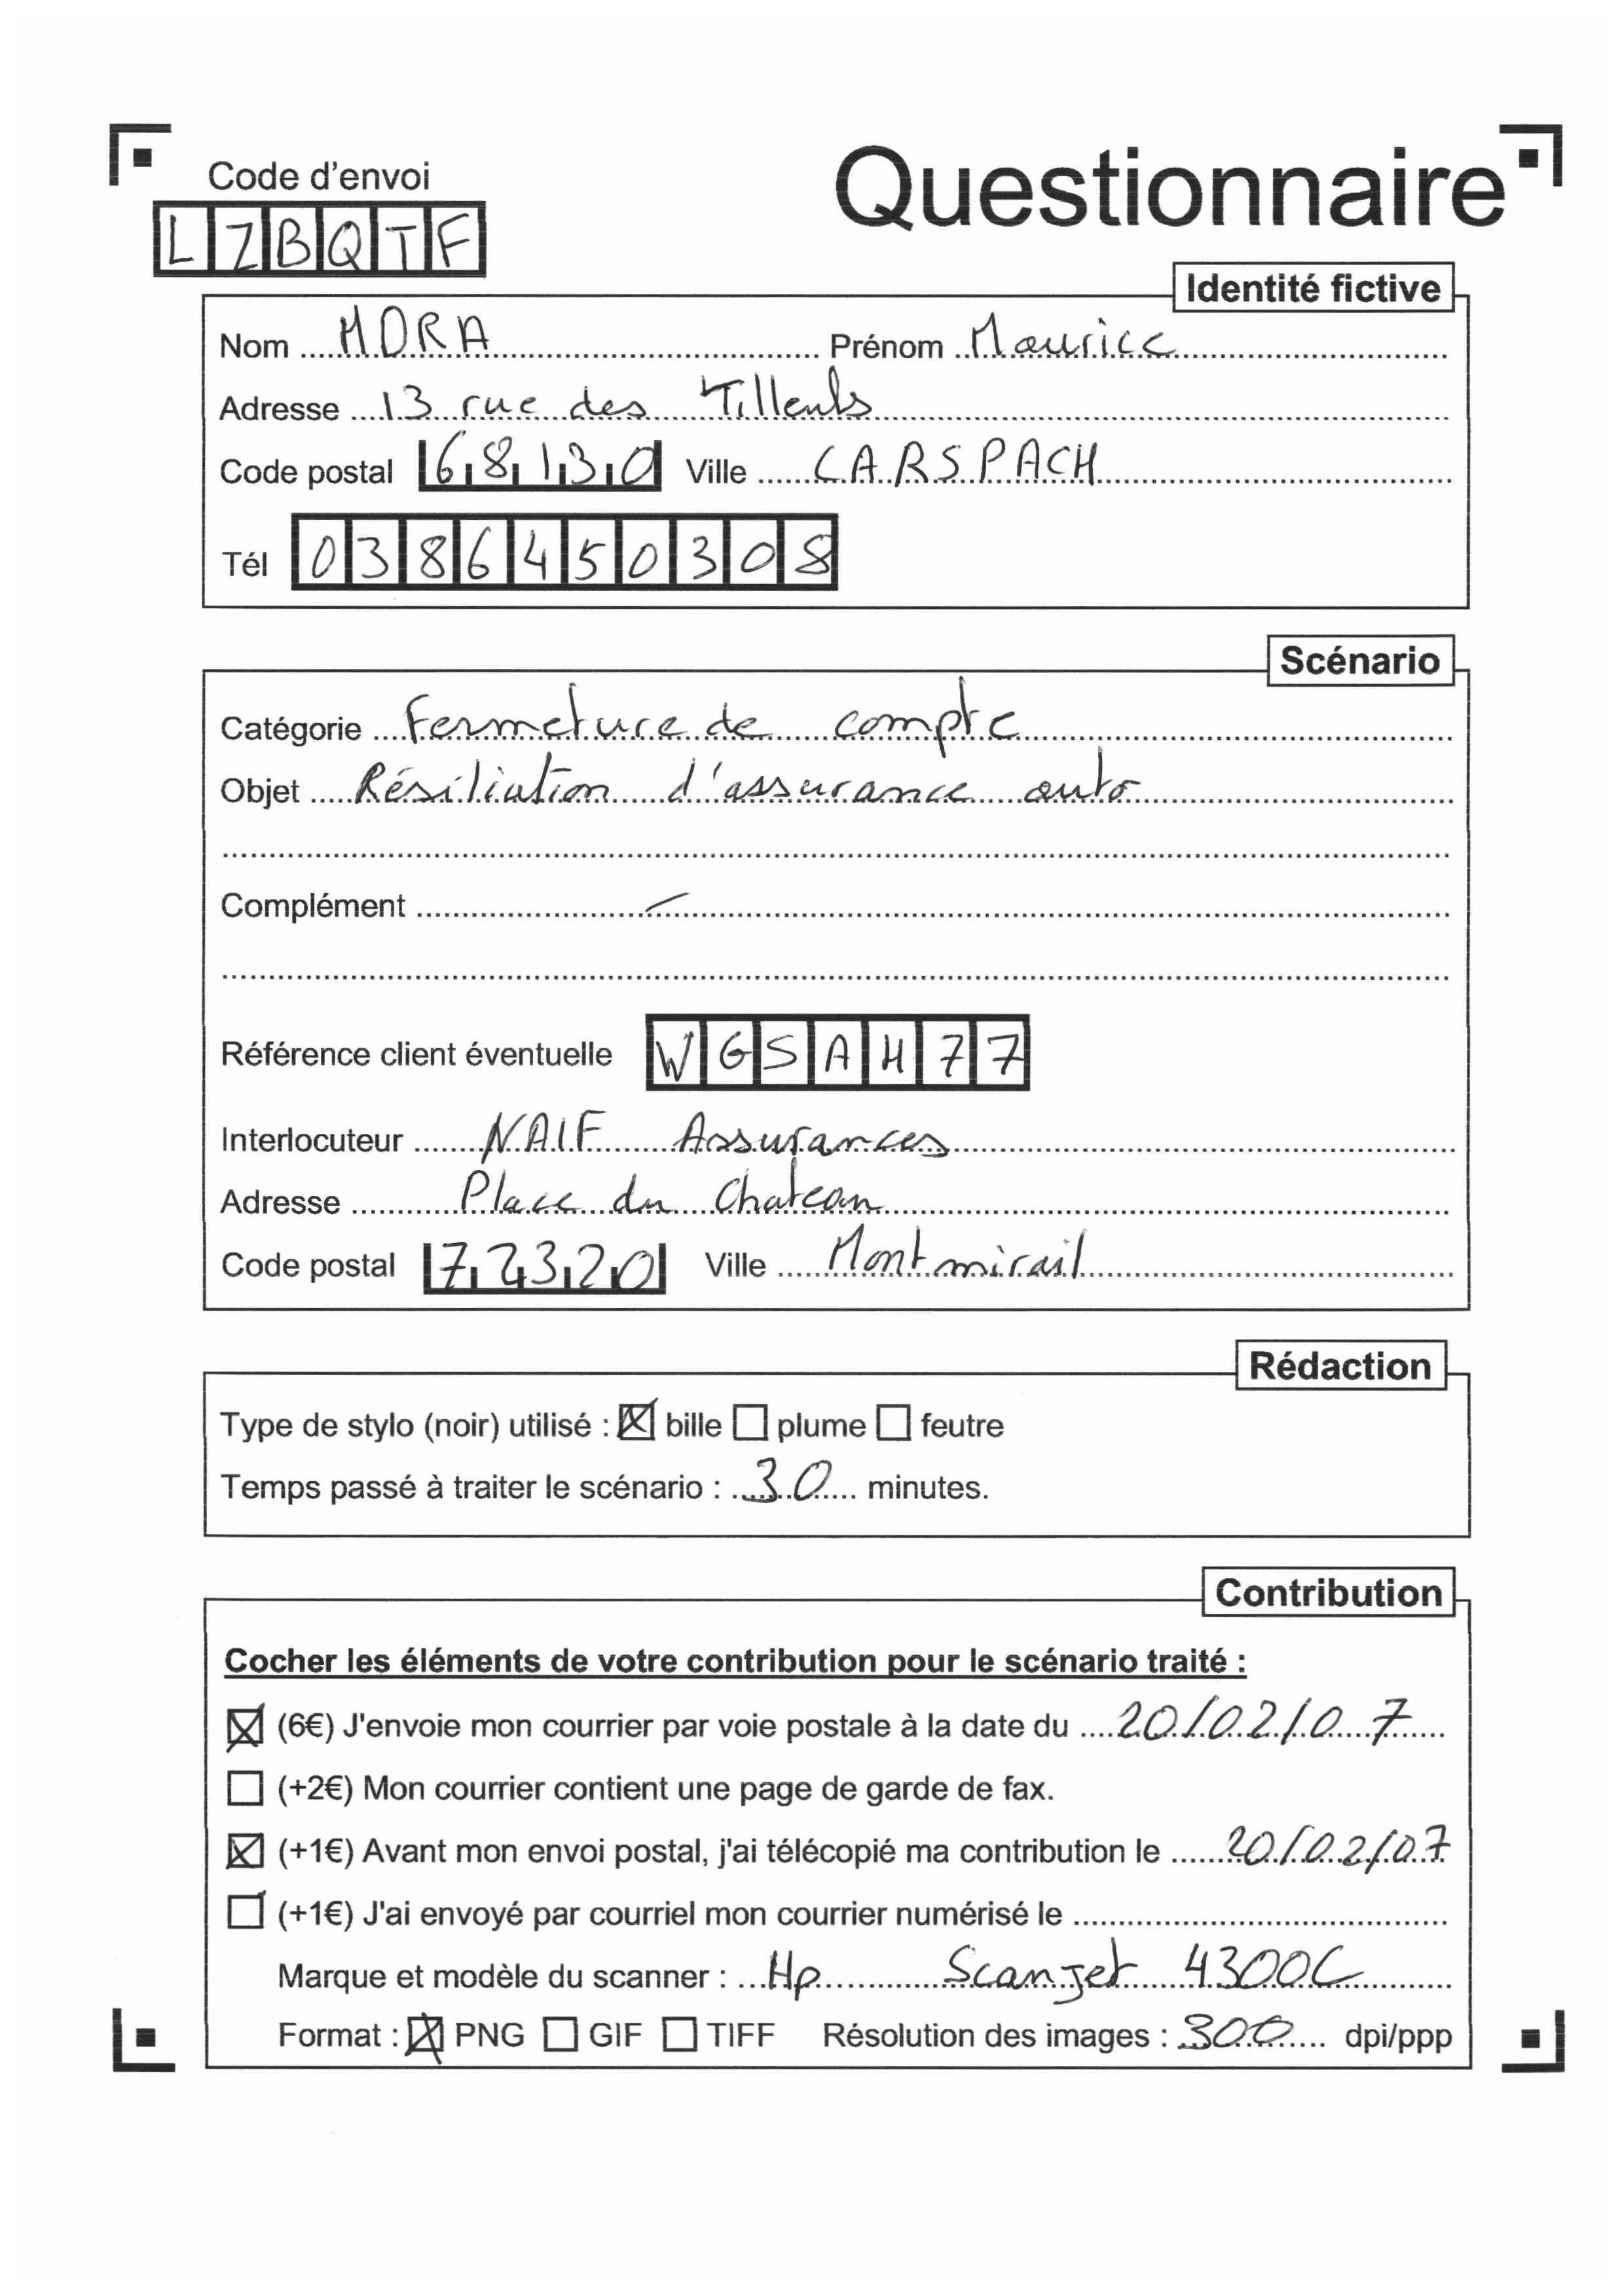 Code d'envoi
Questionnaire
LZBQTF
Identité fictive
Nom MORA Prénom Maurice
Adresse 13 rue des Tilleuls
Code postal 68130 Ville CARSPACH
Tél 0386450308
Scénario
Catégorie Fermeture de compte
Objet Résiliation d'assurance auto
Complément
Référence client éventuelle WGSAH77
Interlocuteur NAIF Assurances
Adresse Place du Chateau
Code postal 72320 Ville Montmirail
Rédaction
Type de stylo (noir) utilisé : bille plume feutre
Temps passé à traiter le scénario : 30 minutes.
Contribution
Cocher les éléments de votre contribution pour le scénario traité :
(6€) J'envoie mon courrier par voie postale à la date du 20/02/07
(+2€) Mon courrier contient une page de garde de fax.
(+1€) Avant mon envoi postal, j'ai télécopié ma contribution le 20/02/07
(+1€) J'ai envoyé par courriel mon courrier numérisé le
Marque et modèle du scanner : Hp Scanjet 4300C
Format : PNG GIF TIFF Résolution des images : 300 dpi/ppp